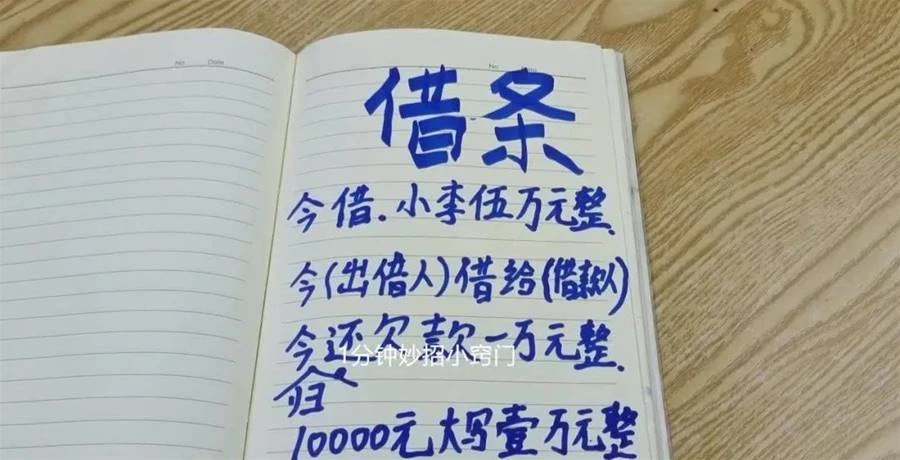 No Date
No Date
借条
今借.小李伍万元整.
今(出借人)借给(借款人)
今还欠款一万元整.
1分钟妙招小窍门
归
10000元大写壹万元整